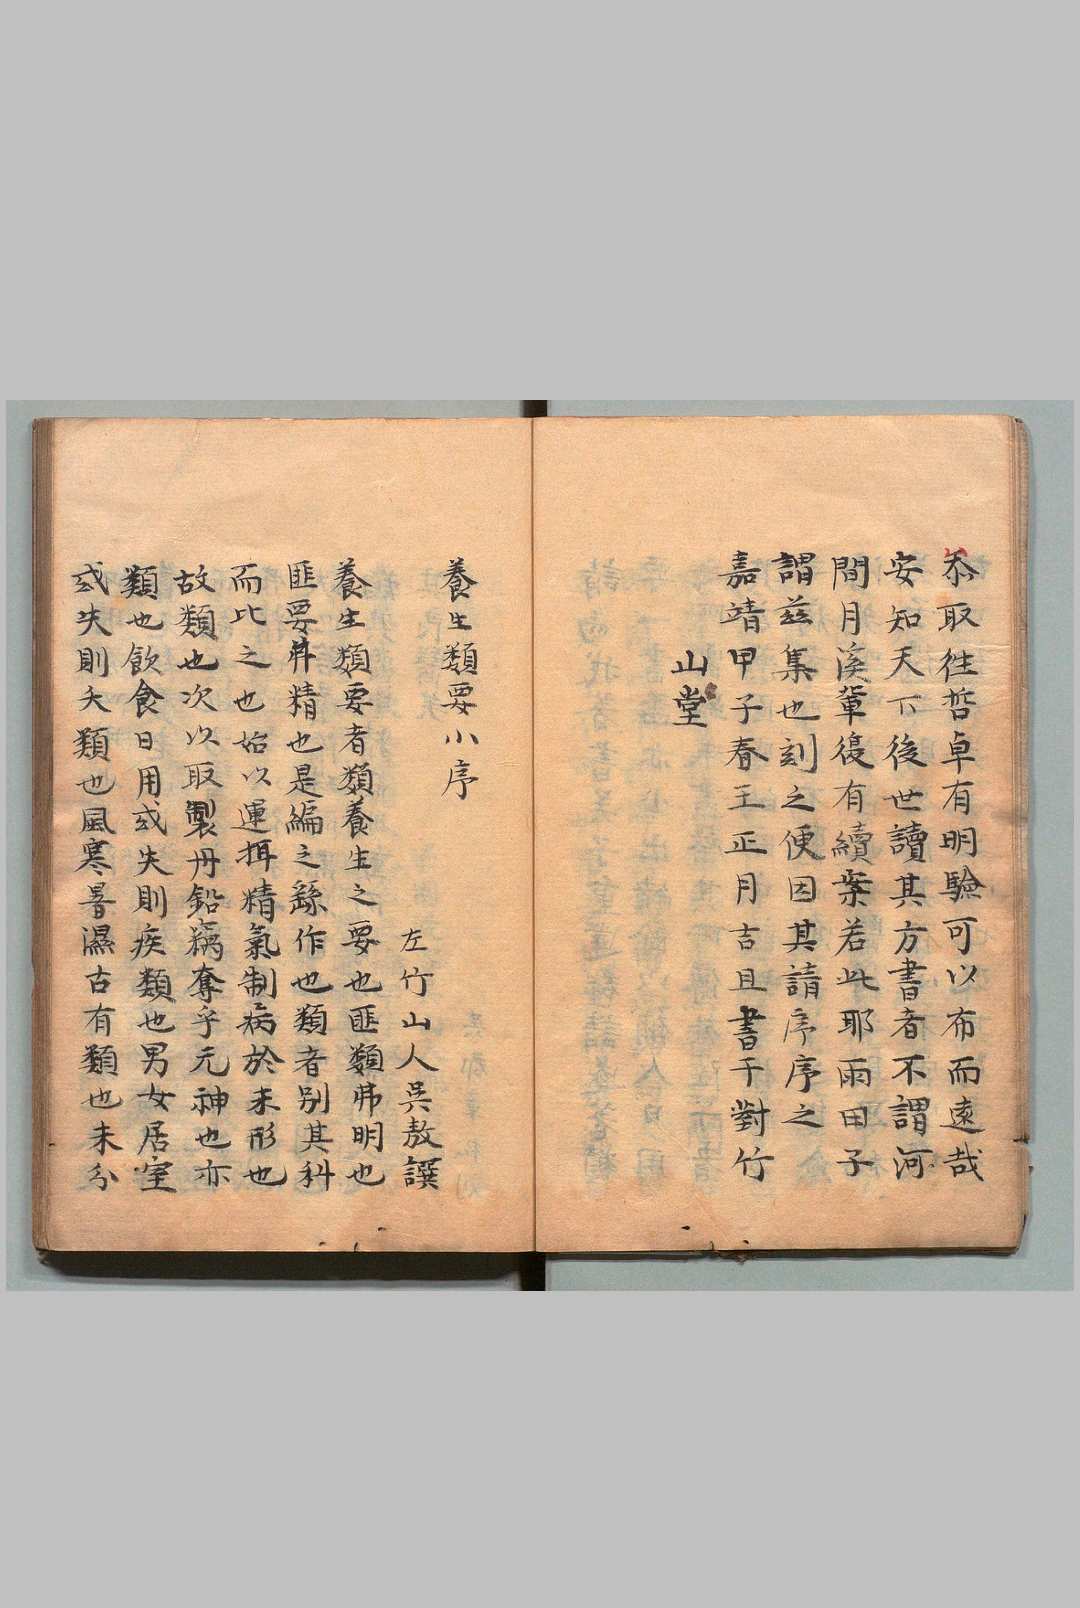 忝取徃哲卓有明驗可以布而遠哉
安知天下後世讀其方書者不謂河
間月溪軰復有續案若此耶雨田子
謂兹集也刻之便因其請序序之
嘉靖甲子春王正月吉旦書于對竹
山堂
養生類要小序
左竹山人吳敖譔
養生類要者類養生之要也匪類弗明也
匪要弗精也是編之繇作也類者别其科
而比之也始以運搄精氣制病於未形也
故類也次以取製丹鉛竊奪乎元神也亦
類也飲食日用或失則疾類也男女居室
或失則夭類也風寒暑濕古有類也未分